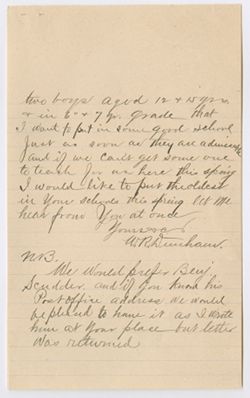 two boys aged 12 & 15 yrs.
& in 6" & 7 yr. grade that
I want to put in some good school
just as soon as they are
and if we can't get some one
to teach for us here this spring
I would like to put the oldest
in your schools this spring let me
hear from You at once
Yours &c
W.R. Denham
N.B.
We would prefer Benj.
Scudder. and if you know his
Post Office address we would
be pleased to have it as I wrote
him at Your place but letter
was returned